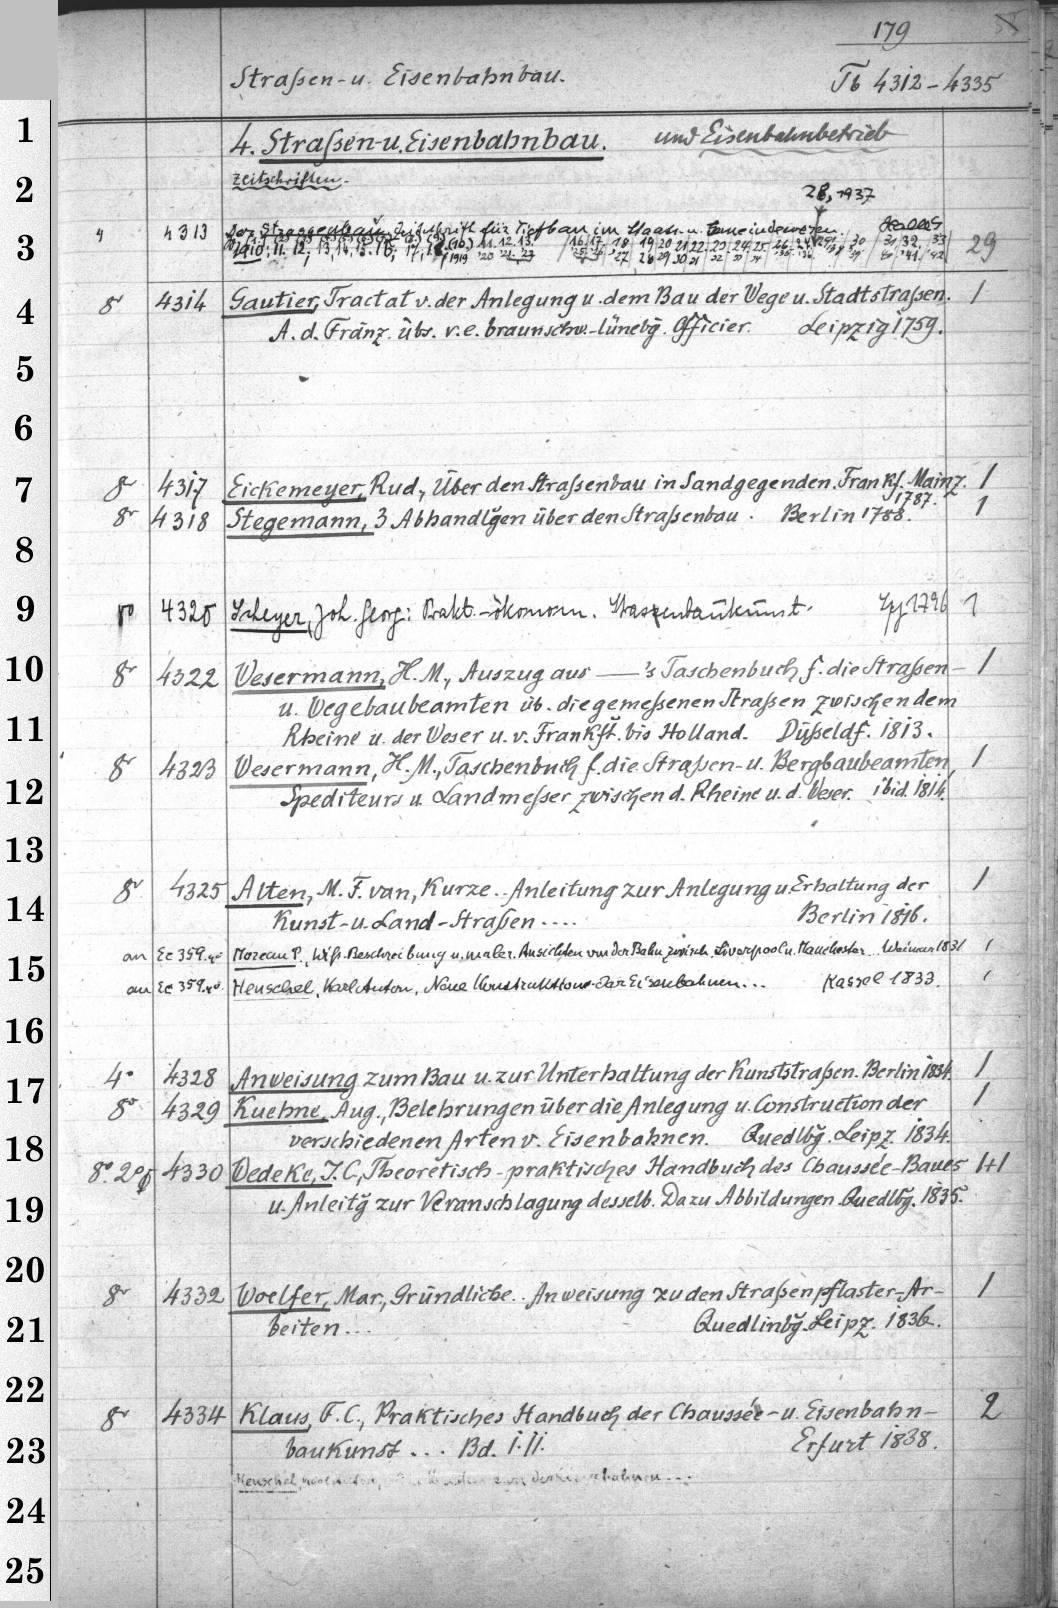 179
Straßen- u. Eisenbahnbau. Tb 4312-4335
4. Straßen- u. Eisenbahnbau. und Eisenbahnbetrieb
Zeitschriften.
28, 1937
4 4313 Der Strassenbau, Zeitschrift für Tiefbau im Staats- u. Gemeindewesen. Halle 29
8° 4314 Gautier, Tractat v. der Anlegung u. dem Bau der Wege u. Stadtstraßen. 1
A. d. Franz. übs. v. e. braunschw.-lünebg. Officier. Leipzig 1759.
8° 4317 Eickemeyer, Rud., Über den Straßenbau in Sandgegenden. Frankf. Mainz. 1
1787.
8° 4318 Stegemann, 3 Abhandlgen über den Straßenbau. Berlin 1788. 1
8° 4320 Scheyer, Joh. Georg: Prakt.-ökonom. Strassenbaukunst. Lpz 1796 1
8° 4322 Wesermann, H. M., Auszug aus —'s Taschenbuch f. die Straßen- 1
u. Wegebaubeamten üb. die gemeßenen Straßen zwischen dem
Rheine u. der Weser u. v. Frankft. bis Holland. Düßeldf. 1813.
8° 4323 Wesermann, H. M., Taschenbuch f. die Straßen- u. Bergbaubeamten, 1
Spediteurs u. Landmeßer zwischen d. Rheine u. d. Weser. ibid. 1814.
8° 4325 Alten, M. F. van, Kurze.. Anleitung zur Anlegung u. Erhaltung der 1
Kunst- u. Land-Straßen .... Berlin 1816.
an Ec 359.4° Moreau P., Wiss. Beschreibung u. maler. Ansichten von der Bahn zwisch. Liverpool u. Manchester.. Weimar 1831 1
an Ec 359.4° Henschel, Karl Anton, Neue Konstruktion der Eisenbahnen... Kassel 1833. 1
4° 4328 Anweisung zum Bau u. zur Unterhaltung der Kunststraßen. Berlin 1834. 1
8° 4329 Kuehne, Aug., Belehrungen über die Anlegung u. Construction der 1
verschiedenen Arten v. Eisenbahnen. Quedlbg. Leipz. 1834.
8°. 2° 4330 Wedeke, J. C., Theoretisch-praktisches Handbuch des Chaussée-Baues 1+1
u. Anleitg zur Veranschlagung desselb. Dazu Abbildungen. Quedlbg. 1835.
8° 4332 Woelfer, Mar., Gründliche.. Anweisung zu den Straßenpflaster-Ar- 1
beiten... Quedlinbg. Leipz. 1836.
8° 4334 Klaus, F. C., Praktisches Handbuch der Chaussée- u. Eisenbahn- 2
baukunst ... Bd. I. II. Erfurt 1838.
Henschel,
1
2
3
4
5
6
7
8
9
10
11
12
13
14
15
16
17
18
19
20
21
22
23
24
25